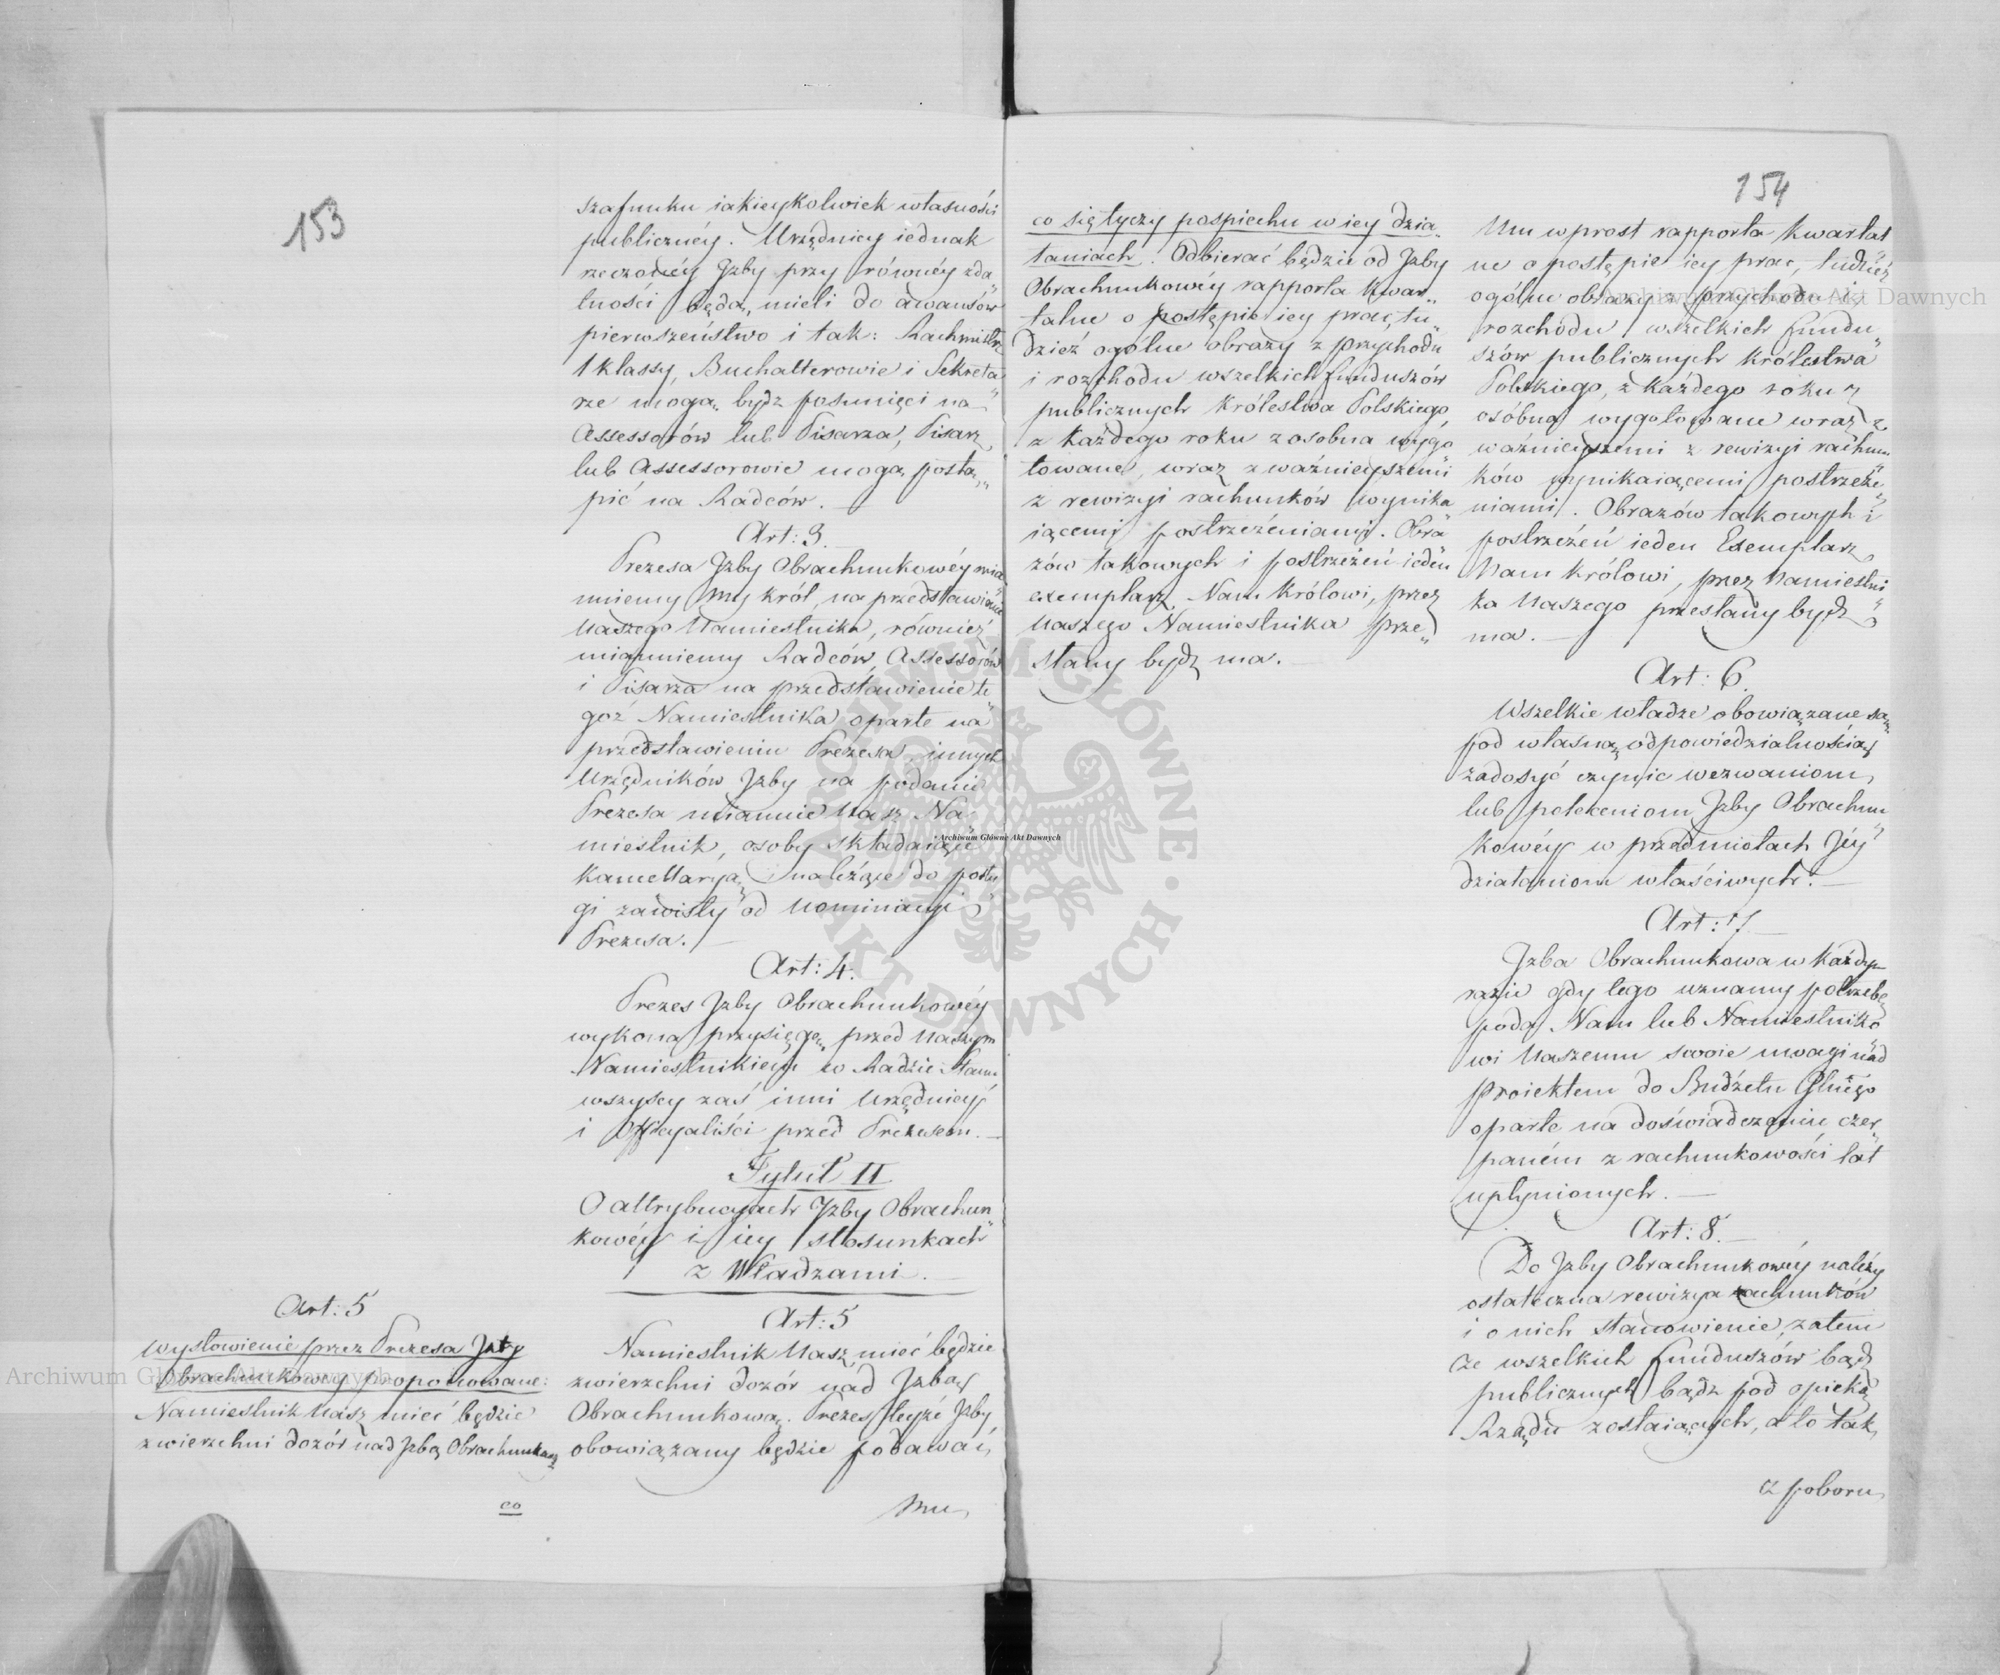 153
szafunku iakieykolwiek własności
publicznéy. Urzędnicy iednak
rzeczonéy Jzby przy równéy zda„
lności będą, mieli do awansów
pierwszeństwo i tak: Rachmistrz
1 klassy, Buchalterowie i Sekreta„
rze mogą bydz posunięci na
Assessorów lub Pisarza, Pisarz
lub Assessorowie mogą postą„
pić na Radców. —
Art: 3. —
Prezesa Jzby Obrachunkowéy mia„
nuiemy My Król, na przedstawienie
Naszego Namiestnika, również
mianuiemy Radców, Assessorów
i Pisarza na przedstawienie te„
goż Namiestnika oparte na
przedstawieniu Prezesa, innych
Urzędników Jzby na podanie
Prezesa mianuie Nasz Na„
miestnik, osoby składaiące
Kancellaryą i należące do posłu„
gi zawisły od Nominacyi
Prezesa. —
Art: 4.
Prezes Jzby Obrachunkowéy
wykona przysięgę przed Naszym
Namiestnikiem w Radzie Stanu
wszyscy zaś inni Urzędnicy
i Officyaliści przed Prezesem. —
Tytuł II
O attrybucyach Jzby Obrachun„
kowéy i iey stosunkach
z Władzami. —
Art: 5
Namiestnik Nasz mieć będzie
zwierzchni dozór nad Jzbą
Obrachunkową. Prezes teyże Jzby
obowiązany będzie podawać
Mu
Art: 5
Wysłowienie przez Prezesa Jzby
Obrachunkowey proponowane:
Namiestnik Nasz mieć będzie
zwierzchni dozór nad Jzbą Obrachunkową
co
154
co się tyczy pospiechu w iey dzia„
łaniach. Odbierać będzie od Jzby
Obrachunkowéy rapporta kwar„
talne o postępie iey prac, tu„
dzież ogólne obrazy z przychodu
i rozchodu wszelkich funduszów
publicznych Królestwa Polskiego,
z każdego roku z osobna wygo„
towane, wraz z ważnieyszemi
z rewizyi rachunków wynika„
iącemi postrzeżeniami. Obra„
zów takowych i postrzeżeń ieden
exemplarz Nam Królowi, przez
Naszego Namiestnika prze„
słany bydź ma. —
Mu wprost rapporta kwartal„
ne o postępie iey prac, tudzież
ogólne obrazy z przychodu i
rozchodu wszelkich fundu„
szów publicznych Królestwa
Polskiego, z każdego roku z
osóbna wygotowane wraz z
ważnieyszemi z rewizyi rachun„
ków wynikaiącemi postrzeże„
niami. Obrazów takowych i
postrzeżeń ieden Exemplarz
Nam Królowi, przez Namiestni„
ka Naszego przesłany bydź
ma. —
Art: 6.
Wszelkie władze obowiązane są
pod własną odpowiedzialnością
zadosyć czynić wezwaniom,
lub poleceniom Jzby Obrachun„
kowéy w przedmiotach Jéy
działaniom właściwych. —
Art: 7. —
Jzba Obrachunkowa w każdym
razie gdy tego uznamy potrzebę
poda Nam lub Namiestniko„
wi Naszemu swoie uwagi nad
Proiektem do Budżetu Głłnégo
oparte na doświadczeniu czer„
paném z rachunkowości lat
upłynionych. —
Art: 8. —
Do Jzby Obrachunkowéy należy
ostateczna rewizya rachunków
i o nich stanowienie, zatem
ze wszelkich funduszów bądź
publicznych bądz pod opieką
Rządu zostaiących, a to tak
z poboru
Archiwum Główne Akt Dawnych
Archiwum Główne Akt Dawnych
Archiwum Główne Akt Dawnych
ARCHIWUM GŁÓWNE AKT DAWNYCH